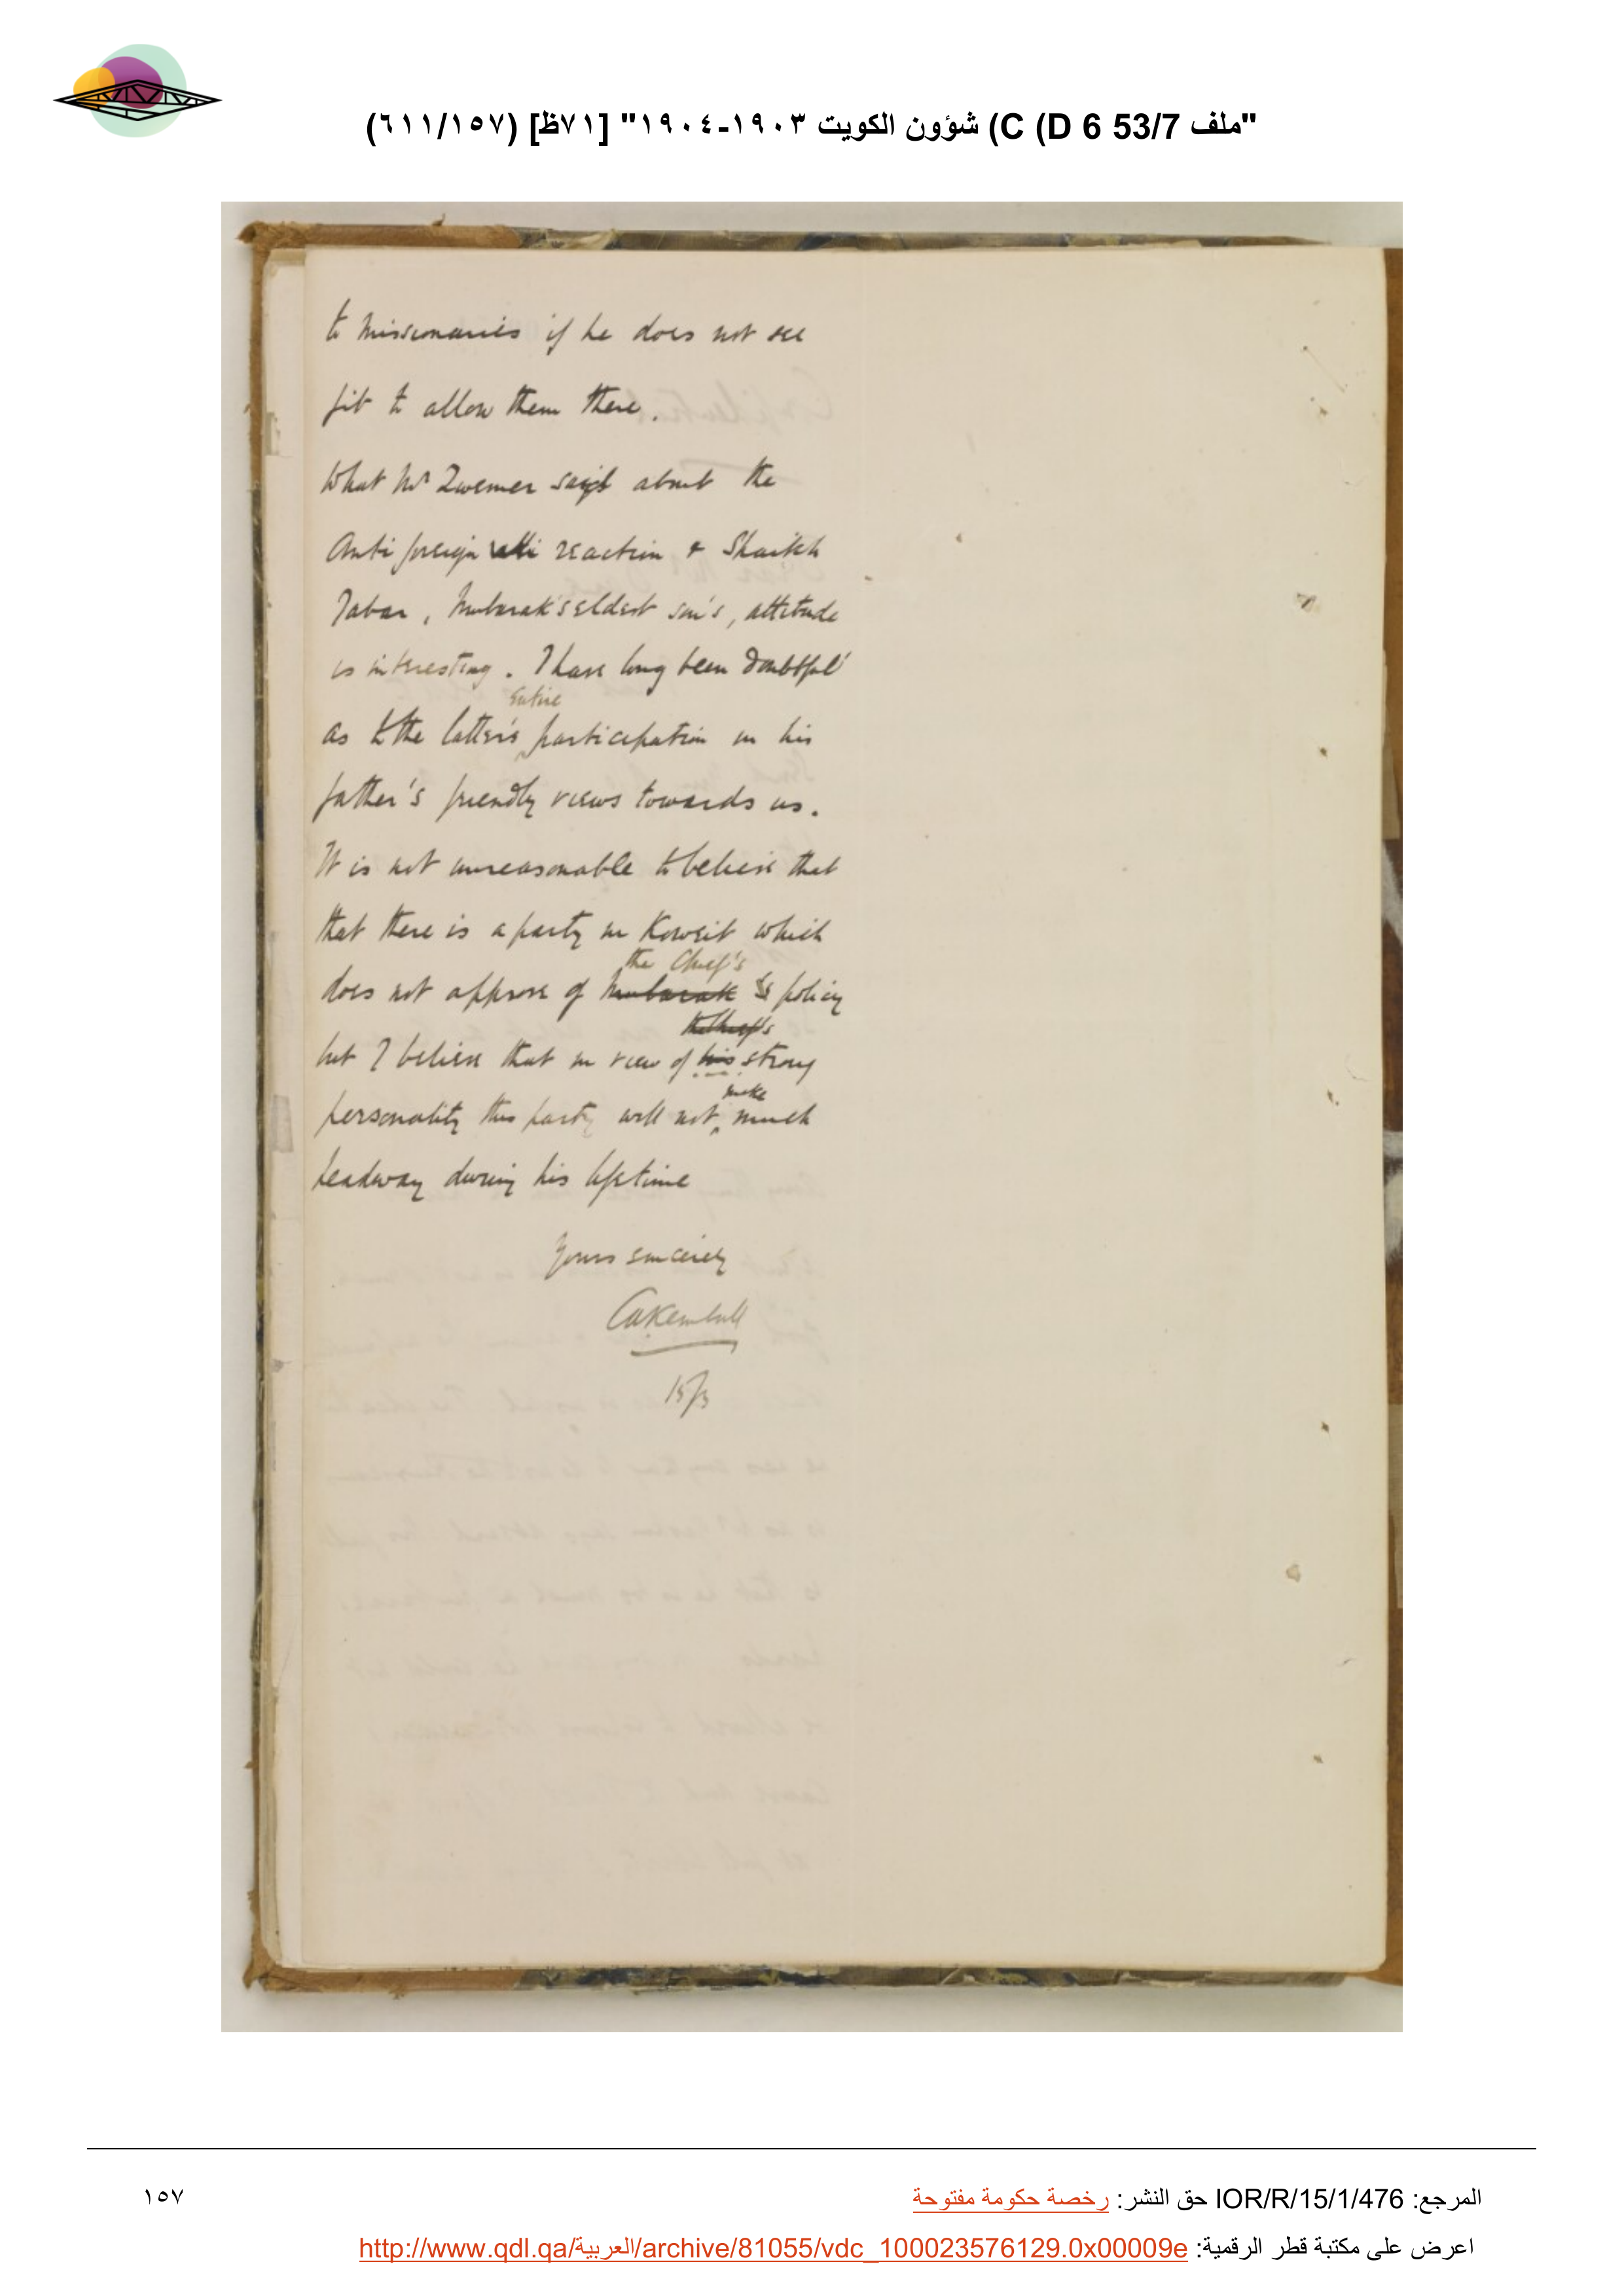 "ملف 53/7 D 6) C) شؤون الكويت ١٩٠٣-١٩٠٤" [٧١ظ] (٦١١/١٥٧)
to missionaries if he does not see
fit to allow them there.
What Mr Zwemer says about the
Anti foreign reaction & Shaikh
Jabar, Mubarak's eldest son's, attitude
is interesting. I have long been doubtful
entire
as to the latter's participation in his
father's friendly views towards us.
It is not unreasonable to believe that
that there is a party in Koweit which
the Chief's
does not approve of Mubarak's policy
the Chief's
but I believe that in view of his strong
make
personality this party will not much
headway during his lifetime
Yours sincerely
CAKemball
15/3
المرجع: IOR/R/15/1/476 حق النشر: رخصة حكومة مفتوحة
١٥٧
اعرض على مكتبة قطر الرقمية: http://www.qdl.qa/العربية/archive/81055/vdc_100023576129.0x00009e